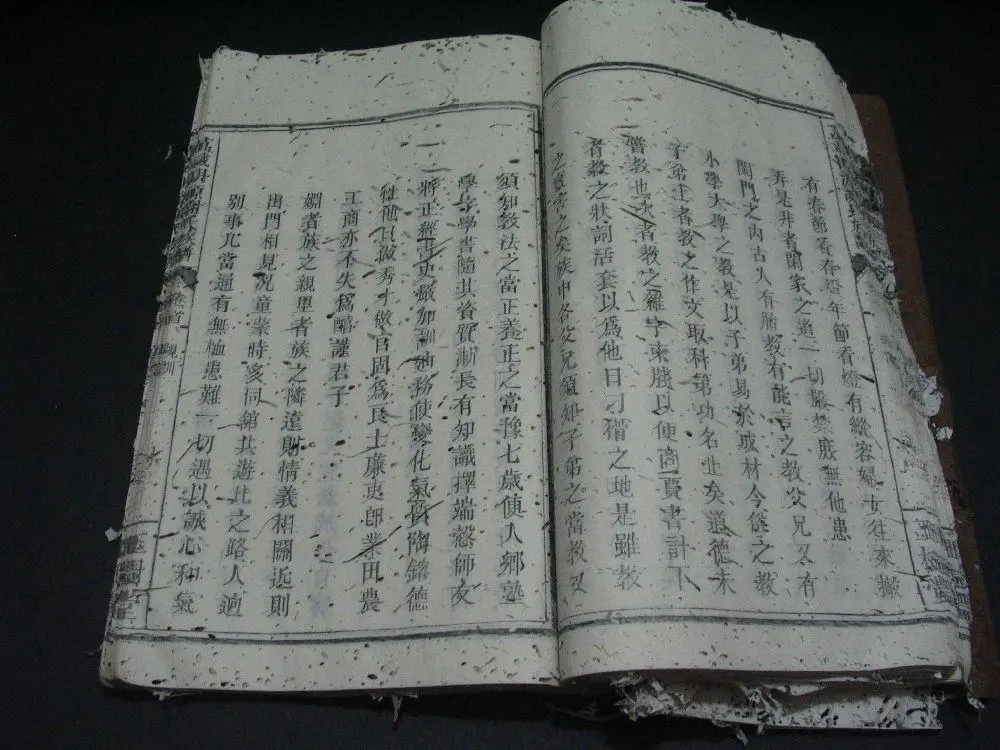 有春節看春燈年節看燈有縱容婦女往來搬
弄是非者開家之道一切嚴禁庶無他患
閨門之內古人有胎教有能言之教父兄又有
小學大學之教是以子弟易於成材今俗之教
子弟上者教之作文取科第功名止矣道德未
嘗教也次者教之雜字柬牋以便商賈書計下
者教之狀詞活套以為他日刁猾之地是雖教
之實害之矣族中各父兄須知子弟之當教又
須知教法之當正養正之當豫七歲便入鄉塾
學字學書隨其資質漸長有知識擇端慤師友
將正經書史嚴加訓廸務使變化氣質陶鎔德
性他日做秀才做官固為良士廉吏卽業田農
工商亦不失為醇謹君子
姻者族之親里者族之隣遠則情義相關近則
出門相見況童蒙時多同舘共遊比之路人逈
別事凡當通有無恤患難一切遇以誠心和氣